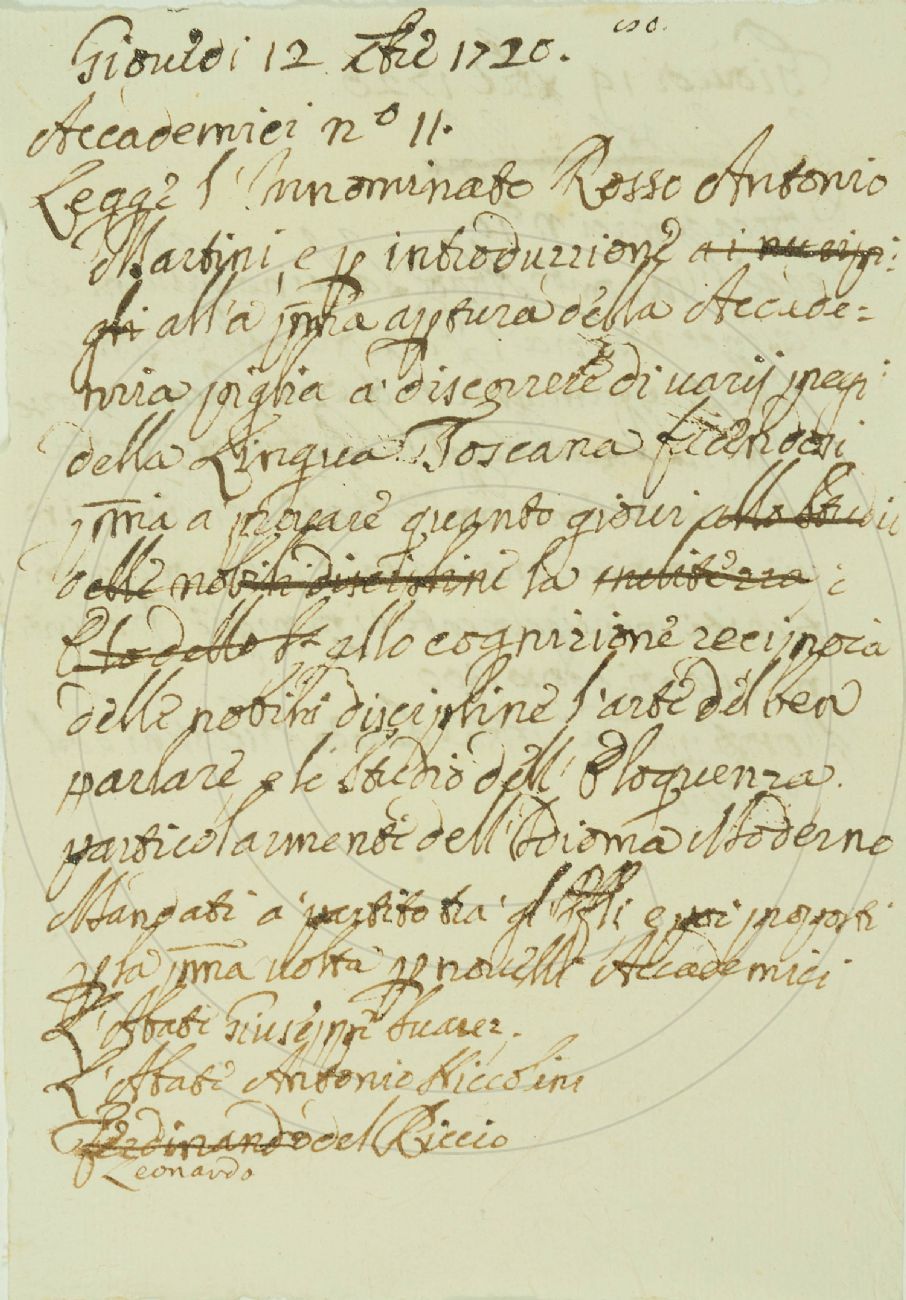 Giovedi 12 Xbre 1720.
Accademici n.o 11.
Legge l'Innominato Rosso Antonio
Martini, e p introduzzione ai
gli alla pma aptura della Accade=
mia piglia a discorrere di varij pregi
della Lingua Toscana facendosi
pma a provare quanto giovi allo studio
delle nobili discipline la
E lo dello allo cognizione reciproca
delle nobili discipline l'arte del ben
parlare, e lo studio dell'Eloquenza
particolarmente dell'Idioma Moderno
Mandati a partito tra gli e poi proposti
p la pma volta p novelli Accademici
L'Abate Giuseppe Buares.
L'Abate Antonio Niccolini
Ferdinando del Riccio
Leonardo